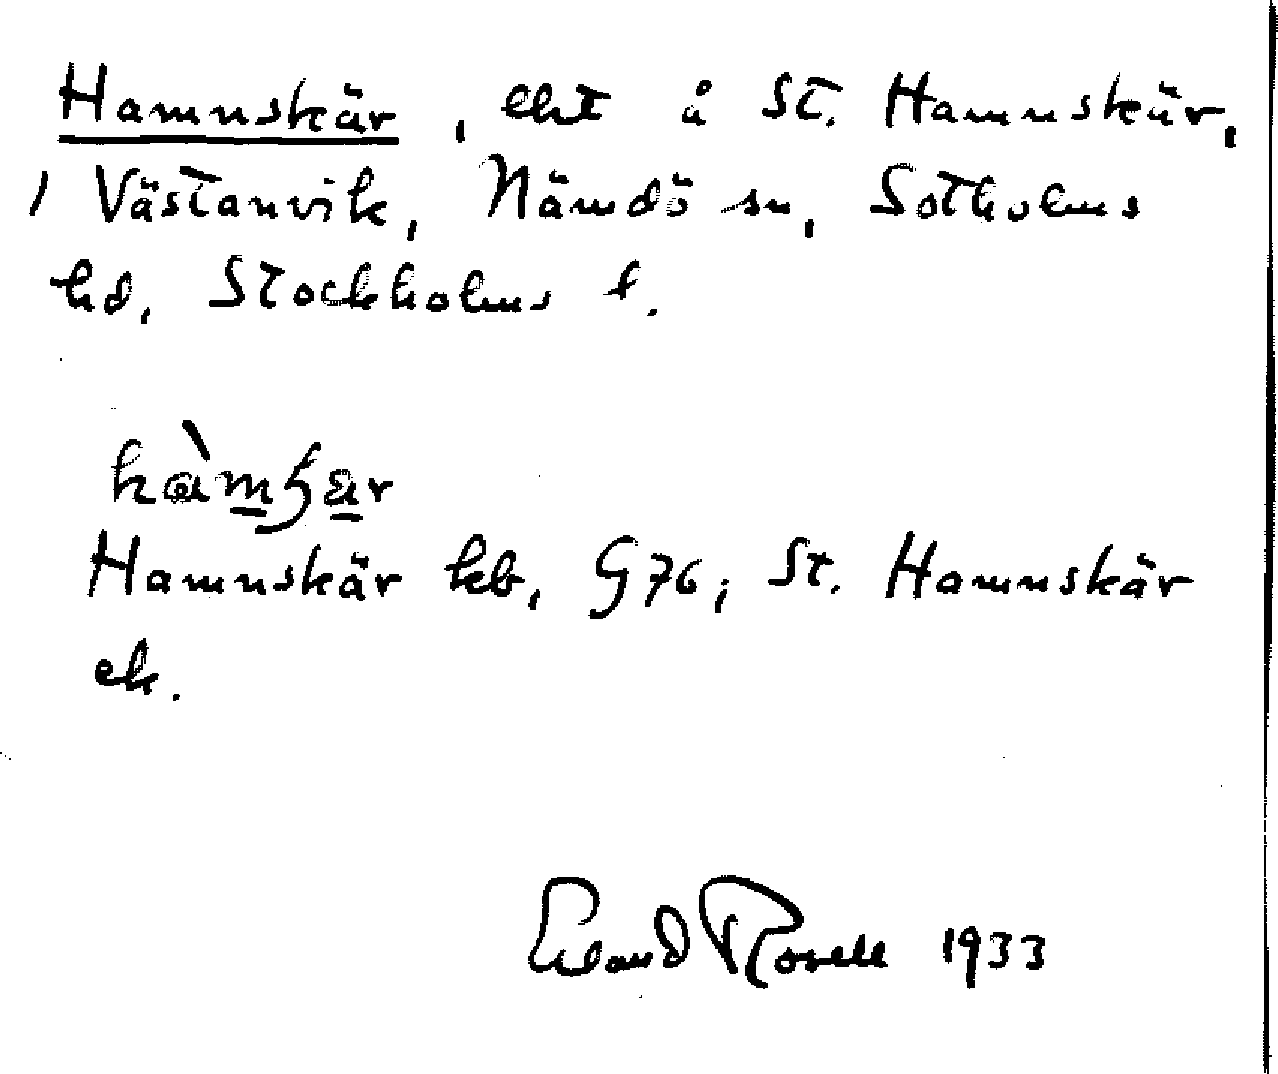 Hamnskär, lht å St. Hamnskär,
/ Västanvik, Nämdö sn, Sotholms
hd, Stockholms l.
Hamnskär kb, G76; St. Hamnskär
ek.
Erland Rosell 1933